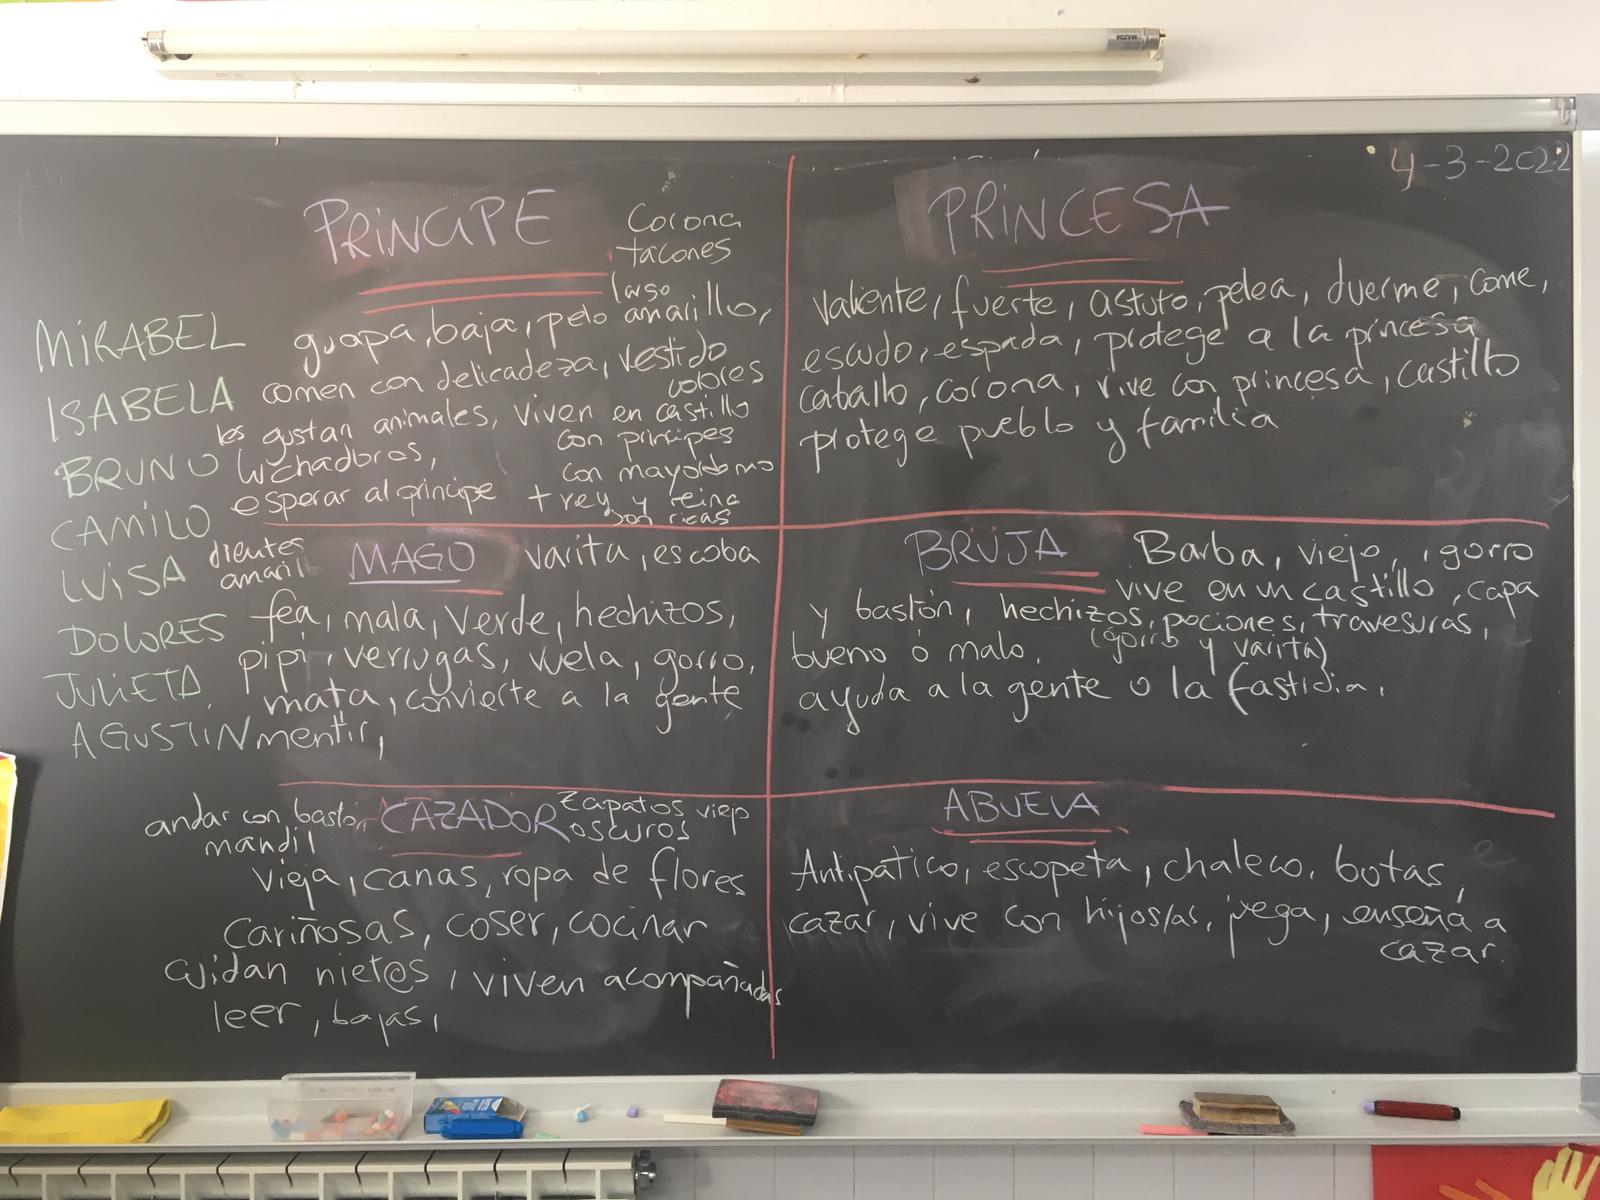 4-3-2022
MIRABEL
ISABELA
BRUNO
CAMILO
LUISA
DOLORES
JULIETA
AGUSTIN
PRINCIPE
Corona
tacones
largo
guapa, baja, pelo amarillo,
comen con delicadeza, vestido
colores
les gustan animales, viven en castillo
luchadoras, con principes
con mayordomo
esperar al principe + rey y reina
son ricas
PRINCESA
valiente, fuerte, astuto, pelea, duerme, come,
escudo, espada, protege a la princesa
caballo, corona, vive con princesa, castillo
protege pueblo y familia
MAGO varita, escoba
dientes
amaril
fea, mala, verde, hechizos,
pipi, verrugas, vuela, gorro,
mata, convierte a la gente
mentir,
BRUJA Barba, viejo, gorro
vive en un castillo, capa
y bastón, hechizos, pociones, travesuras,
bueno o malo. (gorro y varita)
ayuda a la gente o la fastidia.
CAZADOR
andar con bastón
mandil
zapatos viejo
oscuros
vieja, canas, ropa de flores
cariñosas, coser, cocinar
cuidan niet@s, viven acompañadas
leer, bajas,
ABUELA
Antipático, escopeta, chaleco, botas,
cazar, vive con hijos/as, juega, enseña a
cazar.